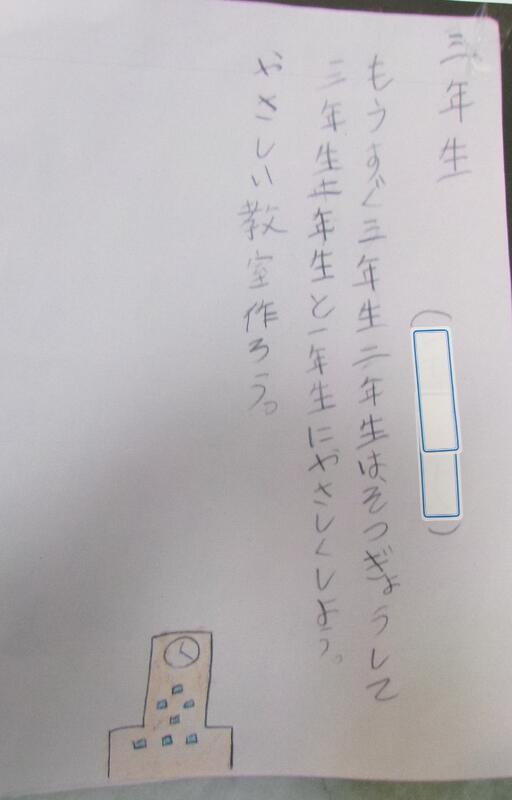 三年生
( )
もうすぐ三年生二年生は、そつぎょうして
三年生十年生と一年生にやさしくしよう。
やさしい教室作ろう。